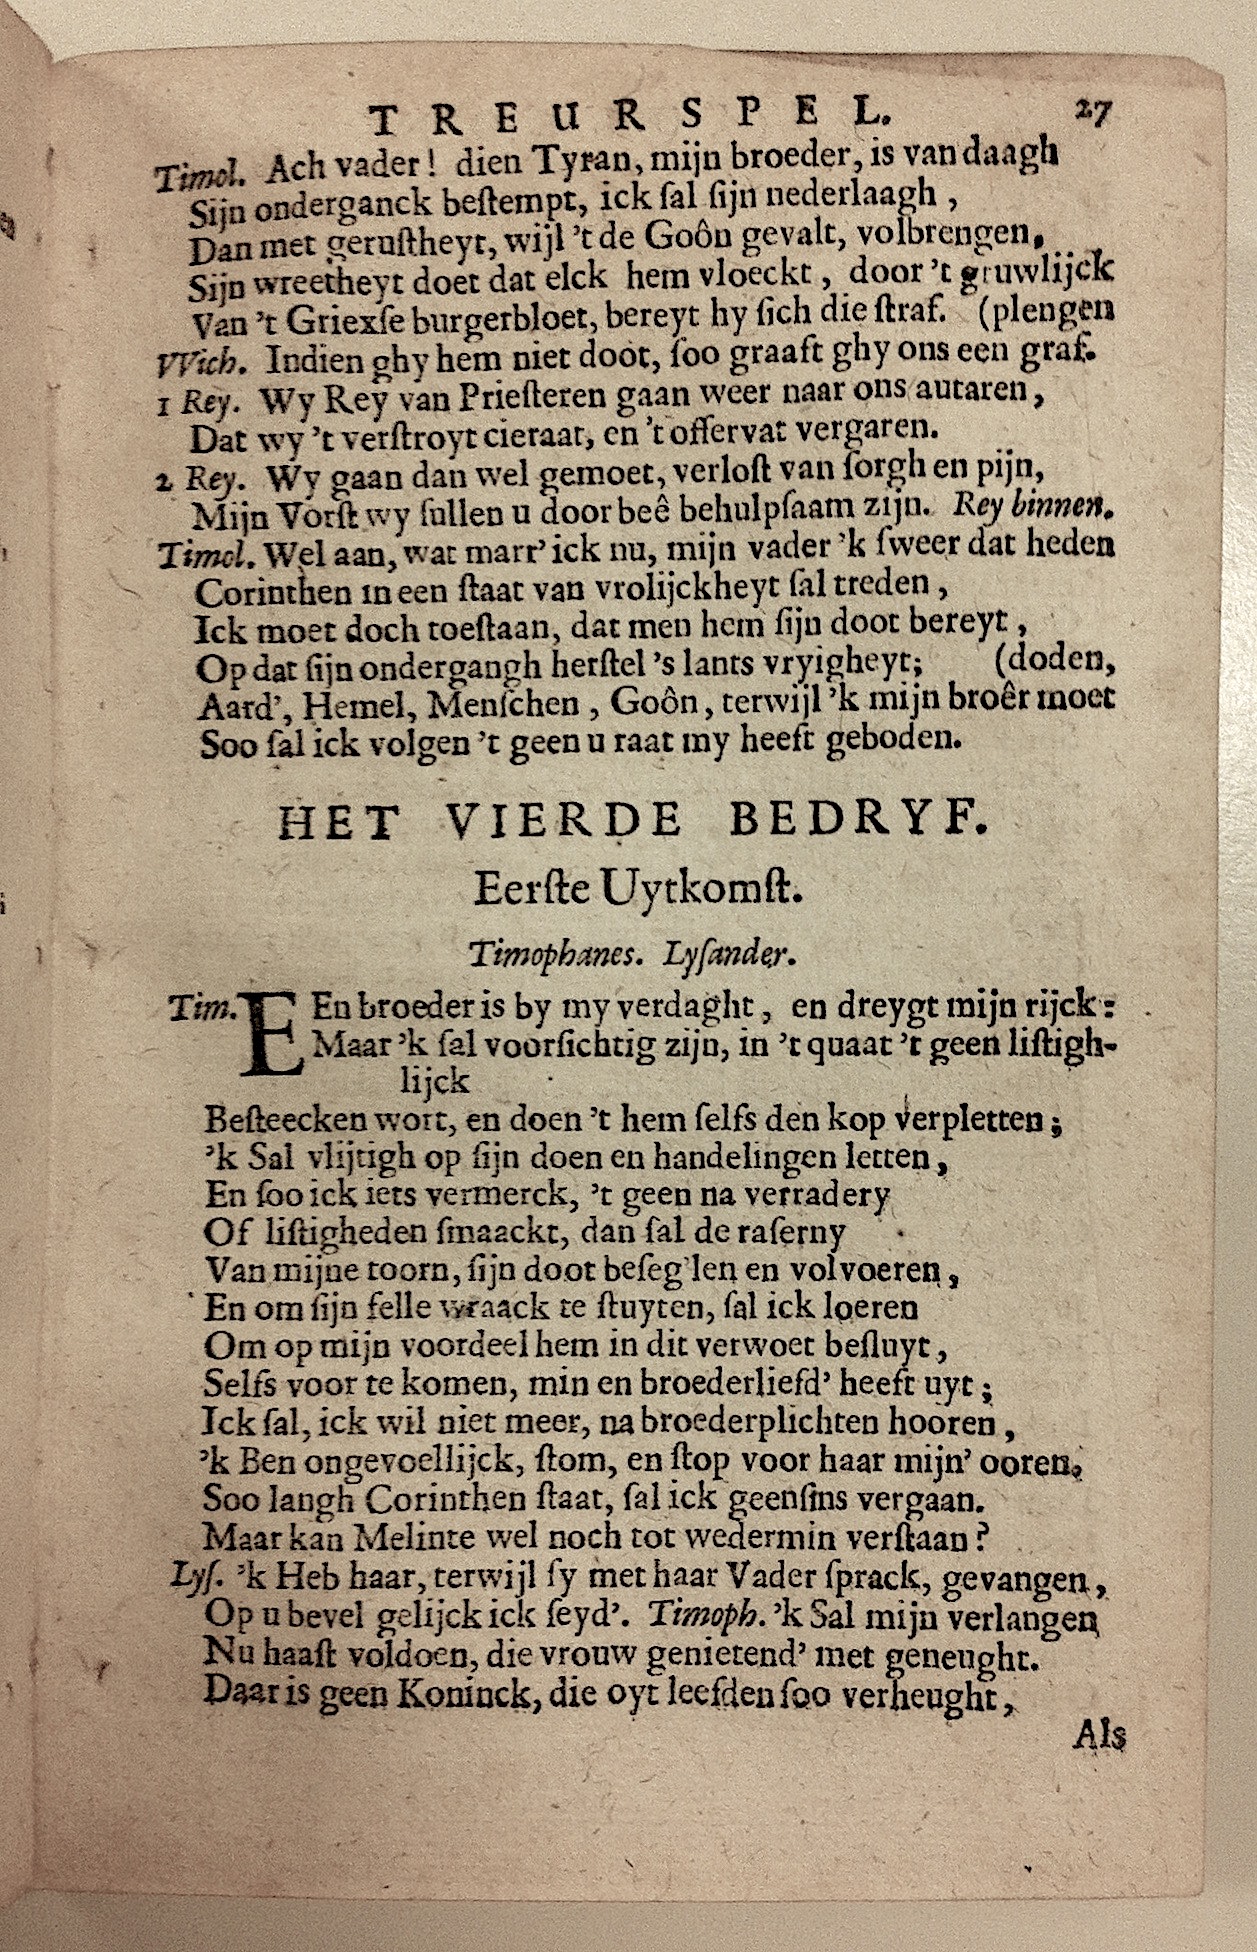 TREURSPEL. 27
Timol. Ach vader! dien Tyran, mijn broeder, is van daagh
Sijn onderganck beſtempt, ick ſal ſijn nederlaagh,
Dan met geruſtheyt, wijl 't de Goôn gevalt, volbrengen,
Sijn wreetheyt doet dat elck hem vloeckt, door 't gruwlijck
Van 't Griexſe burgerbloet, bereyt hy ſich die ſtraf. (plengen
Wich. Indien ghy hem niet doot, ſoo graaft ghy ons een graf.
1 Rey. Wy Rey van Prieſteren gaan weer naar ons autaren,
Dat wy 't verſtroyt cieraat, en 't offervat vergaren.
2 Rey. Wy gaan dan wel gemoet, verloſt van ſorgh en pijn,
Mijn Vorſt wy ſullen u door beê behulpſaam zijn. Rey binnen.
Timol. Wel aan, wat marr' ick nu, mijn vader 'k ſweer dat heden
Corinthen in een ſtaat van vrolijckheyt ſal treden,
Ick moet doch toeſtaan, dat men hem ſijn doot bereyt,
Op dat ſijn ondergangh herſtel 's lants vryigheyt; (doden,
Aard', Hemel, Menſchen, Goôn, terwijl 'k mijn broêr moet
Soo ſal ick volgen 't geen u raat my heeft geboden.
HET VIERDE BEDRYF.
Eerſte Uytkomſt.
Timophanes. Lyſander.
Tim. EEn broeder is by my verdaght, en dreygt mijn rijck:
Maar 'k ſal voorſichtig zijn, in 't quaat 't geen liſtigh-
lijck
Beſteecken wort, en doen 't hem ſelfs den kop verpletten;
'k Sal vlijtigh op ſijn doen en handelingen letten,
En ſoo ick iets vermerck, 't geen na verradery
Of liſtigheden ſmaackt, dan ſal de raſerny
Van mijne toorn, ſijn doot beſeg'len en volvoeren,
En om ſijn felle wraack te ſtuyten, ſal ick loeren
Om op mijn voordeel hem in dit verwoet beſluyt,
Selfs voor te komen, min en broederliefd' heeft uyt;
Ick ſal, ick wil niet meer, na broederplichten hooren,
'k Ben ongevoellijck, ſtom, en ſtop voor haar mijn' ooren,
Soo langh Corinthen ſtaat, ſal ick geenſins vergaan.
Maar kan Melinte wel noch tot wedermin verſtaan?
Lyſ. 'k Heb haar, terwijl ſy met haar Vader ſprack, gevangen,
Op u bevel gelijck ick ſeyd'. Timoph. 'k Sal mijn verlangen
Nu haaſt voldoen, die vrouw genietend' met geneught.
Daar is geen Koninck, die oyt leefden ſoo verheught,
Als